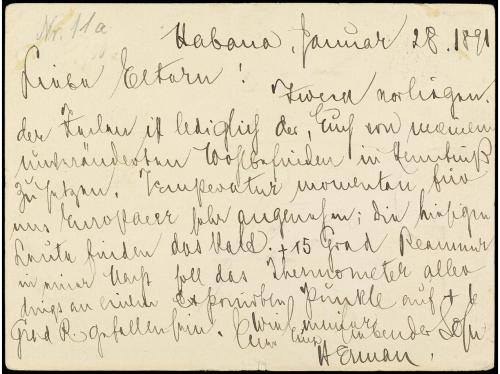 Nr. 11a
Habana, Januar 28. 1891
Liebe Eltern!
Zweck vorliegen-
der Zeilen ist lediglich der, Euch von meinem
unveränderten Wohlbefinden in Kenntniß
zu setzen. Temperatur momentan, für
uns Europaeer sehr angenehm; die hiesigen
Leute finden das kalt. +15 Grad Reaumur
in einer Nacht soll das Thermometer aller
dings an einem exponirten Punkte auf + 6
Grad R. gefallen sein.
Euer liebender Sohn
Herman.